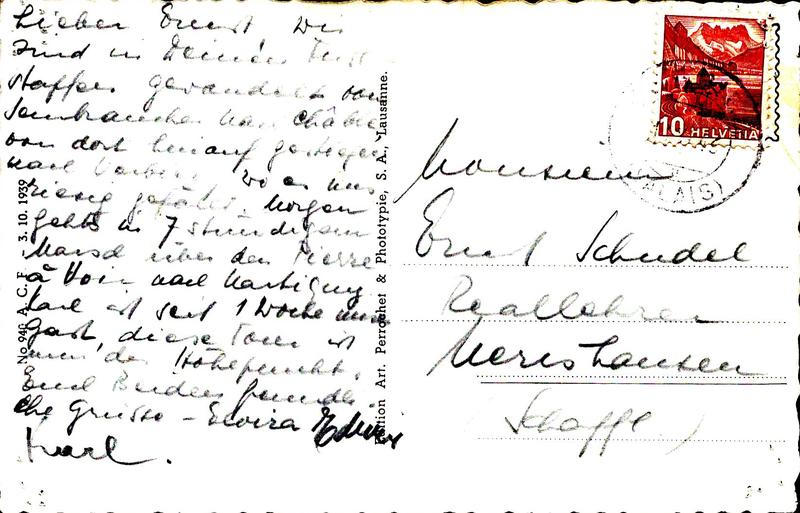 Lieber Ernst Wir
sind in Deinen Fuss
staffen gewandelt von
Sembrancher nach Châble
von dort hinauf gestiegen
nach Verbier, wo es uns
riesig gefällt. Morgen
gehts in 7 stündigem
Marsch über den Pierre
à Voir nach Martigny
Karl ist seit 1 Woche mein
Gast, diese Tour ist
nun der Höhepunkt.
Euch Beiden freundli-
che Grüsse – Elvira
Karl.
No 940 A. C. F. - 3. 10. 1939
Edition Art. Perrochet & Phototypie, S. A., Lausanne.
10 HELVETIA
(VALAIS)
Monsieur
Ernst Schudel
Reallehrer
Merishausen
(Schaffh.)